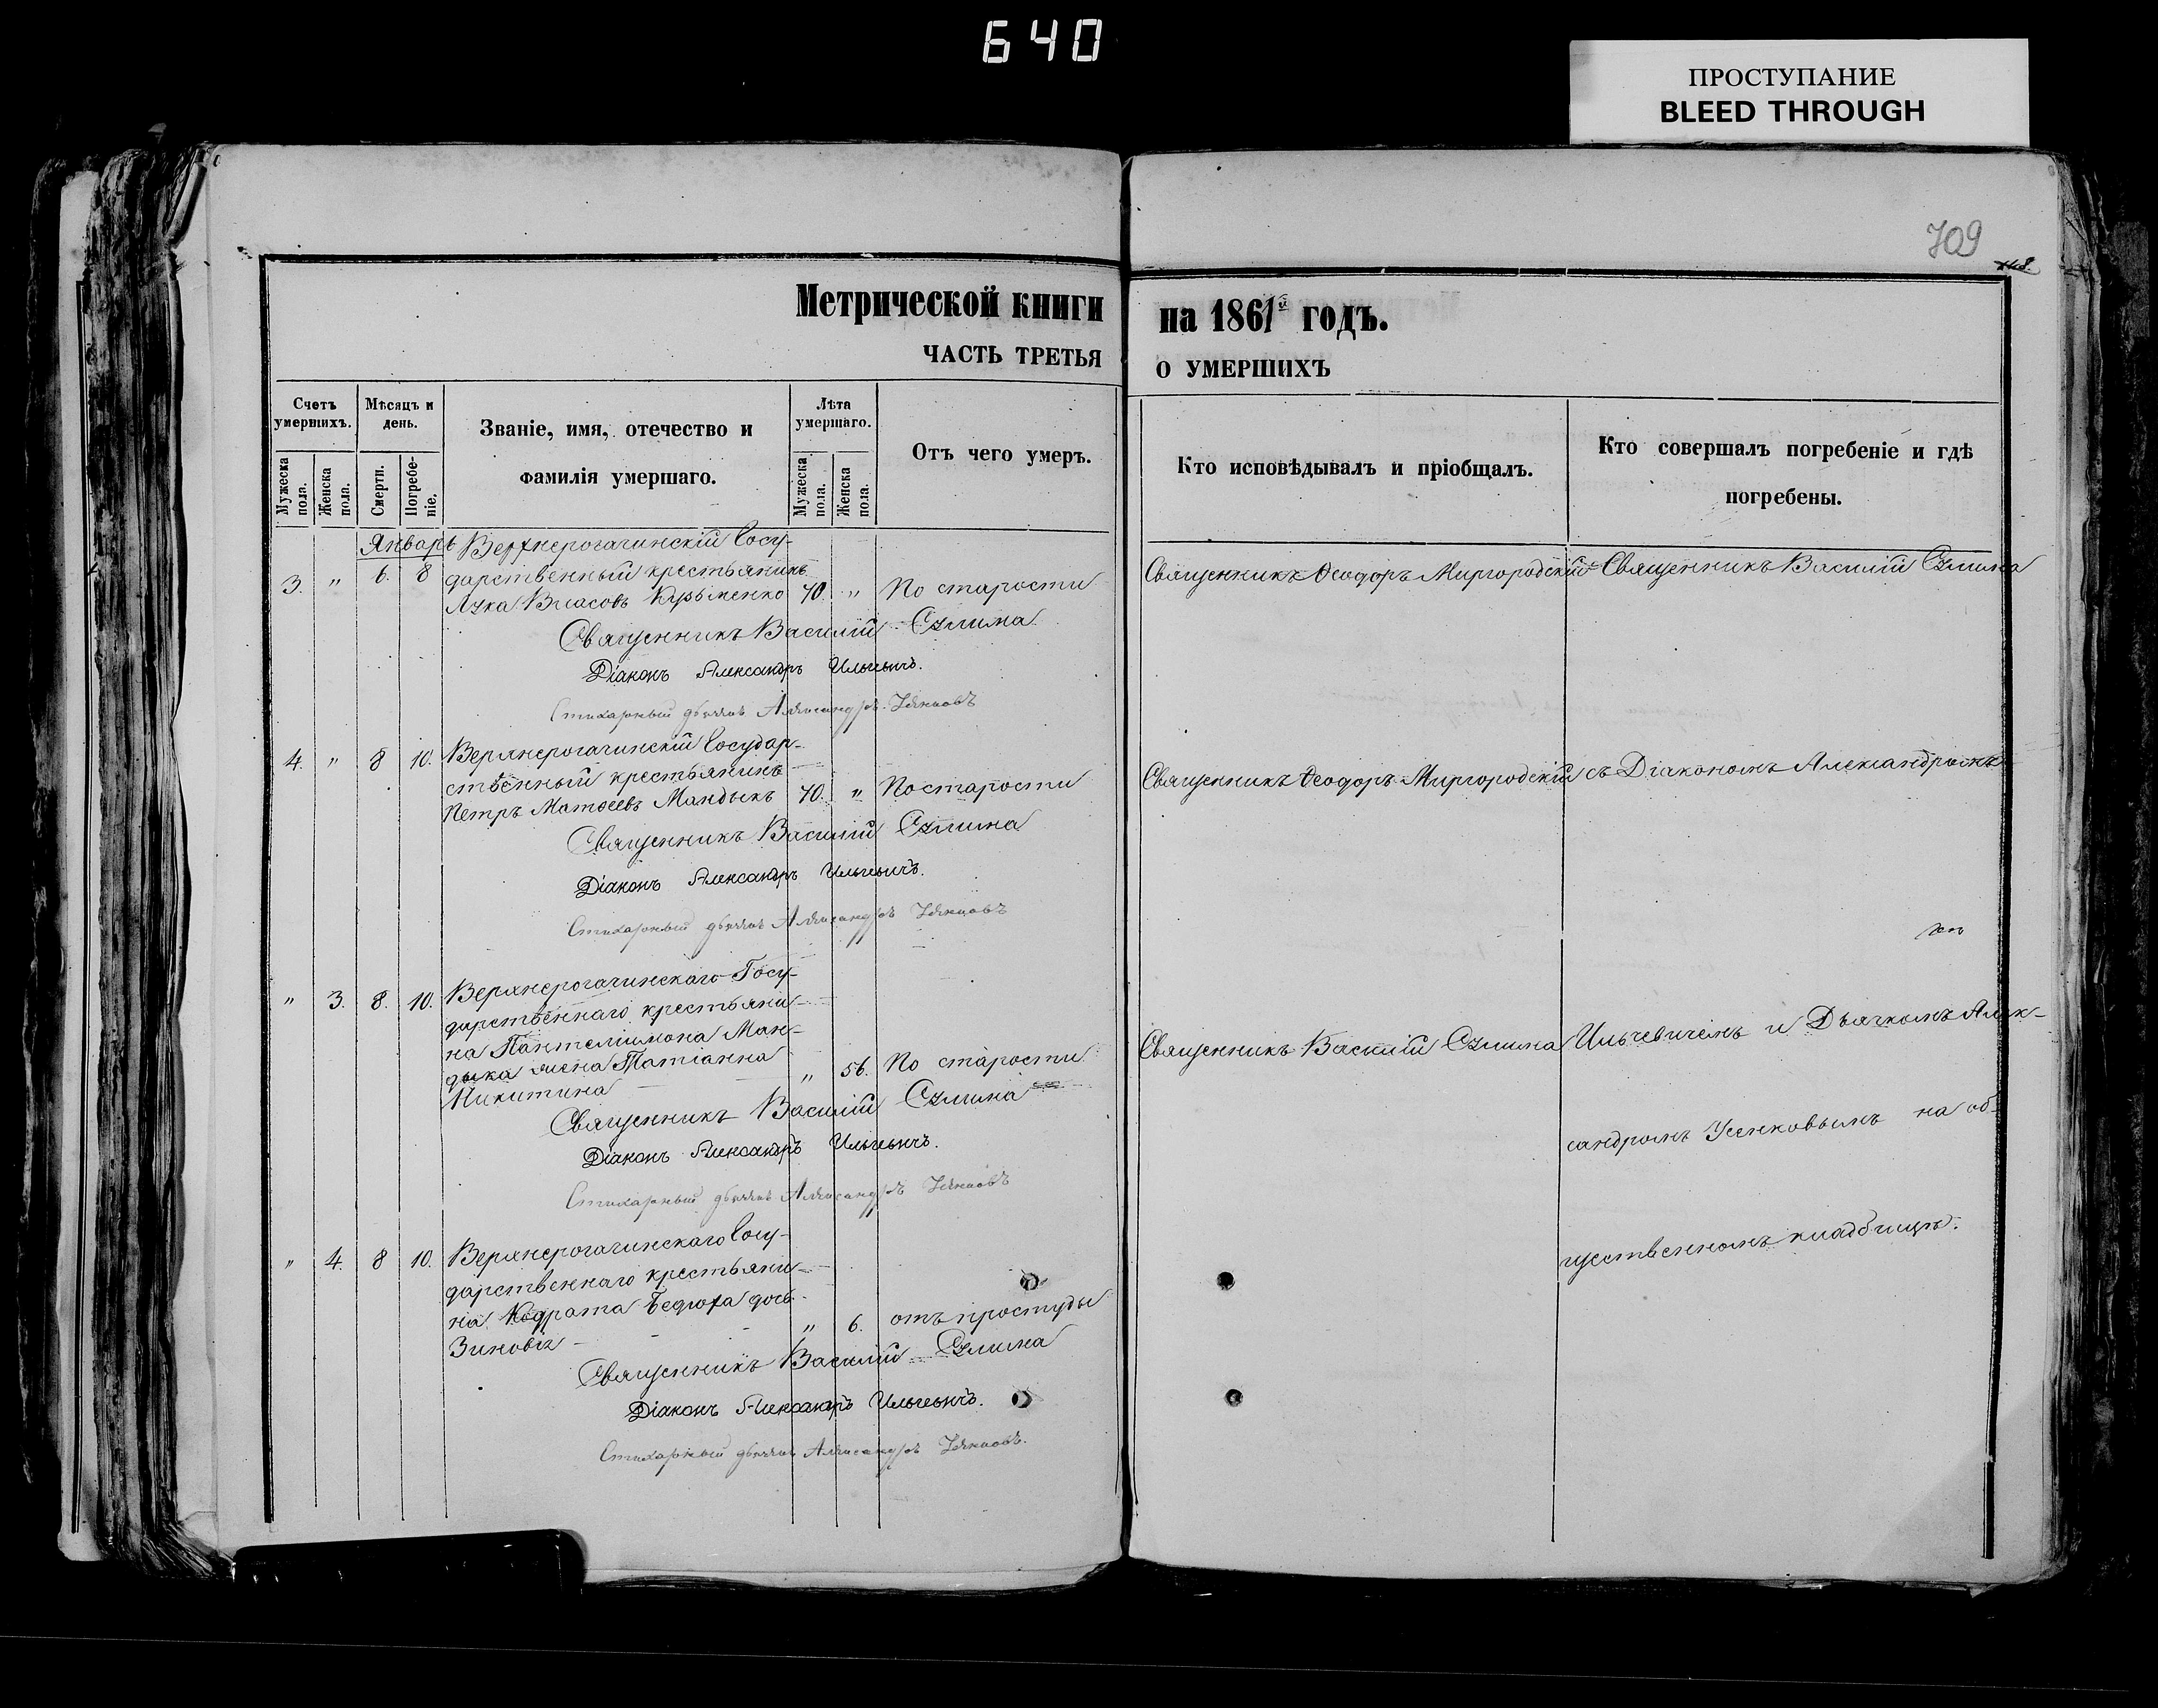 640
ПРОСТУПАНИЕ
BLEED THROUGH
709
Метрической книги на 1861й годъ.
ЧАСТЬ ТРЕТЬЯ О УМЕРШИХЪ
Счетъ умершихъ.
Мѣсяцъ и день.
Званіе, имя, отечество и фамилія умершаго.
Лѣта умершаго.
Отъ чего умеръ.
Кто исповѣдывалъ и пріобщалъ.
Кто совершалъ погребеніе и гдѣ погребены.
Мужеска пола.
Женска пола.
Смерти.
Погребеніе.
Мужеска пола.
Женска пола.
Январь Верхнерогачинскій Госу-
3. " 6. 8 дарственный крестьянинъ
Лука Власовъ Кузьменко 70. " По старости
Священникъ Ѳеодоръ Миргородскій Священникъ Василій
Священникъ Василій
Діаконъ Александръ Ильчевичъ.
Стихарный дьячекъ Александръ Усенковъ
4. " 8 10. Верхнерогачинскій Государ-
ственный крестьянинъ
Петръ Матѳеевъ Мандыкъ 70. " По старости
Священникъ Ѳеодоръ Миргородскій съ Діакономъ Александромъ
Священникъ Василій
Діаконъ Александръ Ильчевичъ.
Стихарный дьячекъ Александръ Усенковъ
" 3. 8. 10. Верхнерогачинскаго Госу-
дарственнаго крестьяни-
на Пантелимона Ман-
дыка жена Татіанна
Никитина " 56. По старости
Священникъ Василій Ильчевичемъ и Дьячкомъ Алек-
Священникъ Василій
Діаконъ Александръ Ильчевичъ.
сандромъ Усенковымъ на об-
Стихарный дьячекъ Александръ Усенковъ
" 4. 8 10. Верхнерогачинскаго Госу-
дарственнаго крестьяни-
на Кодрата Бедюха дочь
Зиновія " 6. отъ простуды
щественномъ кладбищѣ.
Священникъ Василій
Діаконъ Александръ Ильчевичъ.
Стихарный дьячекъ Александръ Усенковъ.